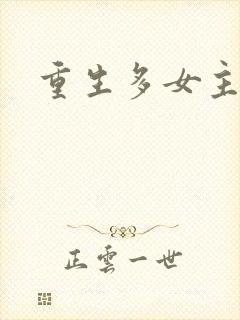 重生多女主
正雲一世